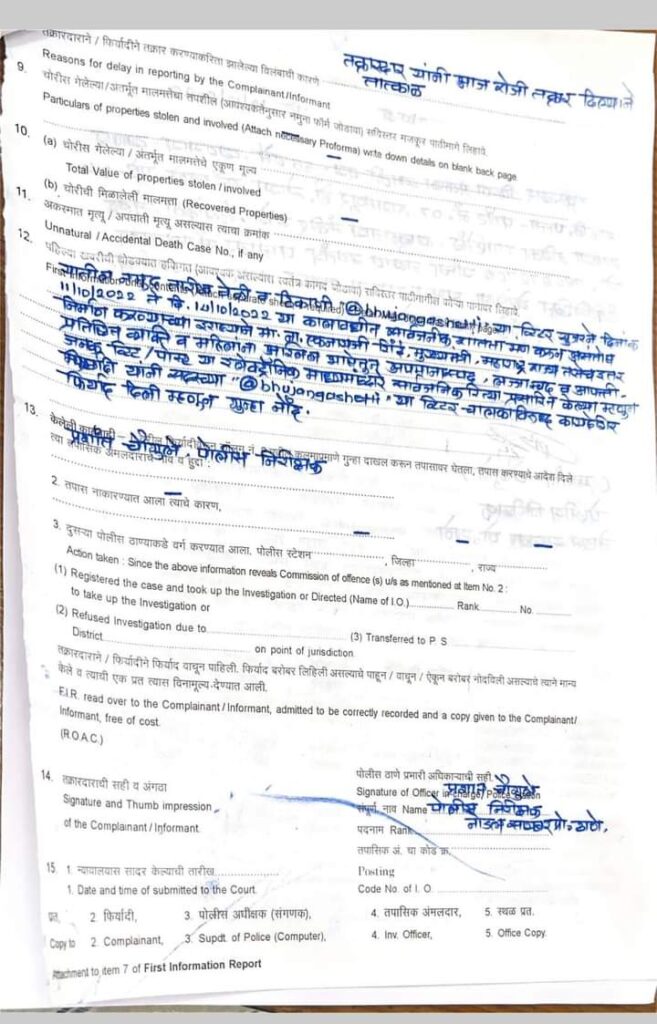 तक्रारदाराने / फिर्यादीने तक्रार करण्याकरिता झालेल्या विलंबाची कारणे
तक्रारदार यांनी आज रोजी तक्रार दिल्याने
तात्काळ
9. Reasons for delay in reporting by the Complainant/Informant
चोरीस गेलेल्या/अंतर्भूत मालमत्तेचा तपशील (आवश्यकतेनुसार नमुना फॉर्म जोडावा) सविस्तर मजकूर पाठीमागे लिहावे.
Particulars of properties stolen and involved (Attach necessary Proforma) write down details on blank back page
10. (a) चोरीस गेलेल्या / अंतर्भूत मालमत्तेचे एकूण मूल्य
Total Value of properties stolen / involved
(b) चोरीची मिळालेली मालमत्ता (Recovered Properties)
11. अकस्मात मृत्यू / अपघाती मृत्यू असल्यास त्याचा क्रमांक
Unnatural / Accidental Death Case No., if any
12. पहिल्या खबरीची थोडक्यात हकिगत (आवश्यक असल्यास स्वतंत्र कागद जोडावा) सविस्तर पाठीमागील कोऱ्या पानावर लिहावे.
First Information
वरील नमूद तारीख वेळी व ठिकाणी @bhujangashetti या ट्विटर युजरने दिनांक
11/10/2022 ते दि. 14/10/2022 या कालावधीत सार्वजनिक शांतता भंग करून असंतोष
निर्माण करण्याच्या मा. ना. एकनाथजी शिंदे, मुख्यमंत्री, महाराष्ट्र राज्य तसेच इतर
प्रतिष्ठित व्यक्ती व महिलांना अपमानास्पद, लज्जास्पद व आपत्ती-
जनक ट्विट / पोस्ट या इलेक्ट्रॉनिक माध्यमाद्वारे सार्वजनिकरित्या प्रसारित केल्या म्हणून
फिर्यादी यांनी "@bhujangashetti" या ट्विटर चालकाविरुद्ध कायदेशीर
फिर्याद दिली म्हणून गुन्हा नोंद.
13. केलेली कारवाई गुन्हा दाखल करून तपासावर घेतला, तपास करण्याचे आदेश दिले
प्रशांत चौगुले, पोलीस निरीक्षक
त्या अंमलदाराचे नाव व हुद्दा :
2. तपास नाकारण्यात आला त्याचे कारण,
3. दुसऱ्या पोलीस ठाण्याकडे वर्ग करण्यात आला. पोलीस स्टेशन , जिल्हा , राज्य
Action taken : Since the above information reveals Commission of offence (s) u/s as mentioned at Item No. 2 :
(1) Registered the case and took up the Investigation or Directed (Name of I.O.) Rank No.
to take up the Investigation or
(2) Refused Investigation due to (3) Transferred to P S
District on point of jurisdiction.
तक्रारदाराने / फिर्यादीने फिर्याद वाचून पाहिली. फिर्याद बरोबर लिहिली असल्याचे पाहून / वाचून / ऐकून बरोबर नोंदविली असल्याचे त्याने मान्य
केले व त्याची एक प्रत त्यास विनामूल्य देण्यात आली.
F.I.R. read over to the Complainant / Informant, admitted to be correctly recorded and a copy given to the Complainant/
Informant, free of cost.
(R.O.A.C.)
14. तक्रारदाराची सही व अंगठा
Signature and Thumb impression
of the Complainant / Informant.
पोलीस ठाणे प्रभारी अधिकाऱ्याची सही
Signature of Officer in-charge, Police Station
प्रशांत चौगुले
संपूर्ण नाव Name पोलीस निरीक्षक
पदनाम Rank
तपासिक अं. चा कोड क्र.
Posting
Code No. of I. O.
15. 1. न्यायालयास सादर केल्याची तारीख
1. Date and time of submitted to the Court
प्रत, 2. फिर्यादी, 3. पोलीस अधीक्षक (संगणक), 4. तपासिक अंमलदार, 5. स्थळ प्रत.
Copy to 2. Complainant, 3. Supdt. of Police (Computer), 4. Inv. Officer, 5. Office Copy.
Attachment to item 7 of First Information Report